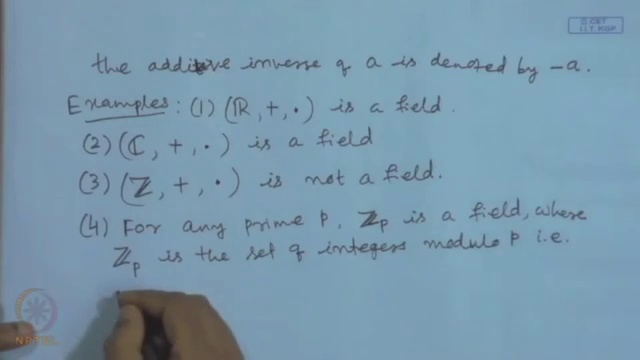 © CET
I.I.T. KGP
the additive inverse of a is denoted by -a.
Examples: (1) (ℝ, +, ·) is a field.
(2) (ℂ, +, ·) is a field
(3) (ℤ, +, ·) is not a field.
(4) For any prime p, ℤp is a field, where
ℤp is the set of integers modulo p i.e.
NPTEL